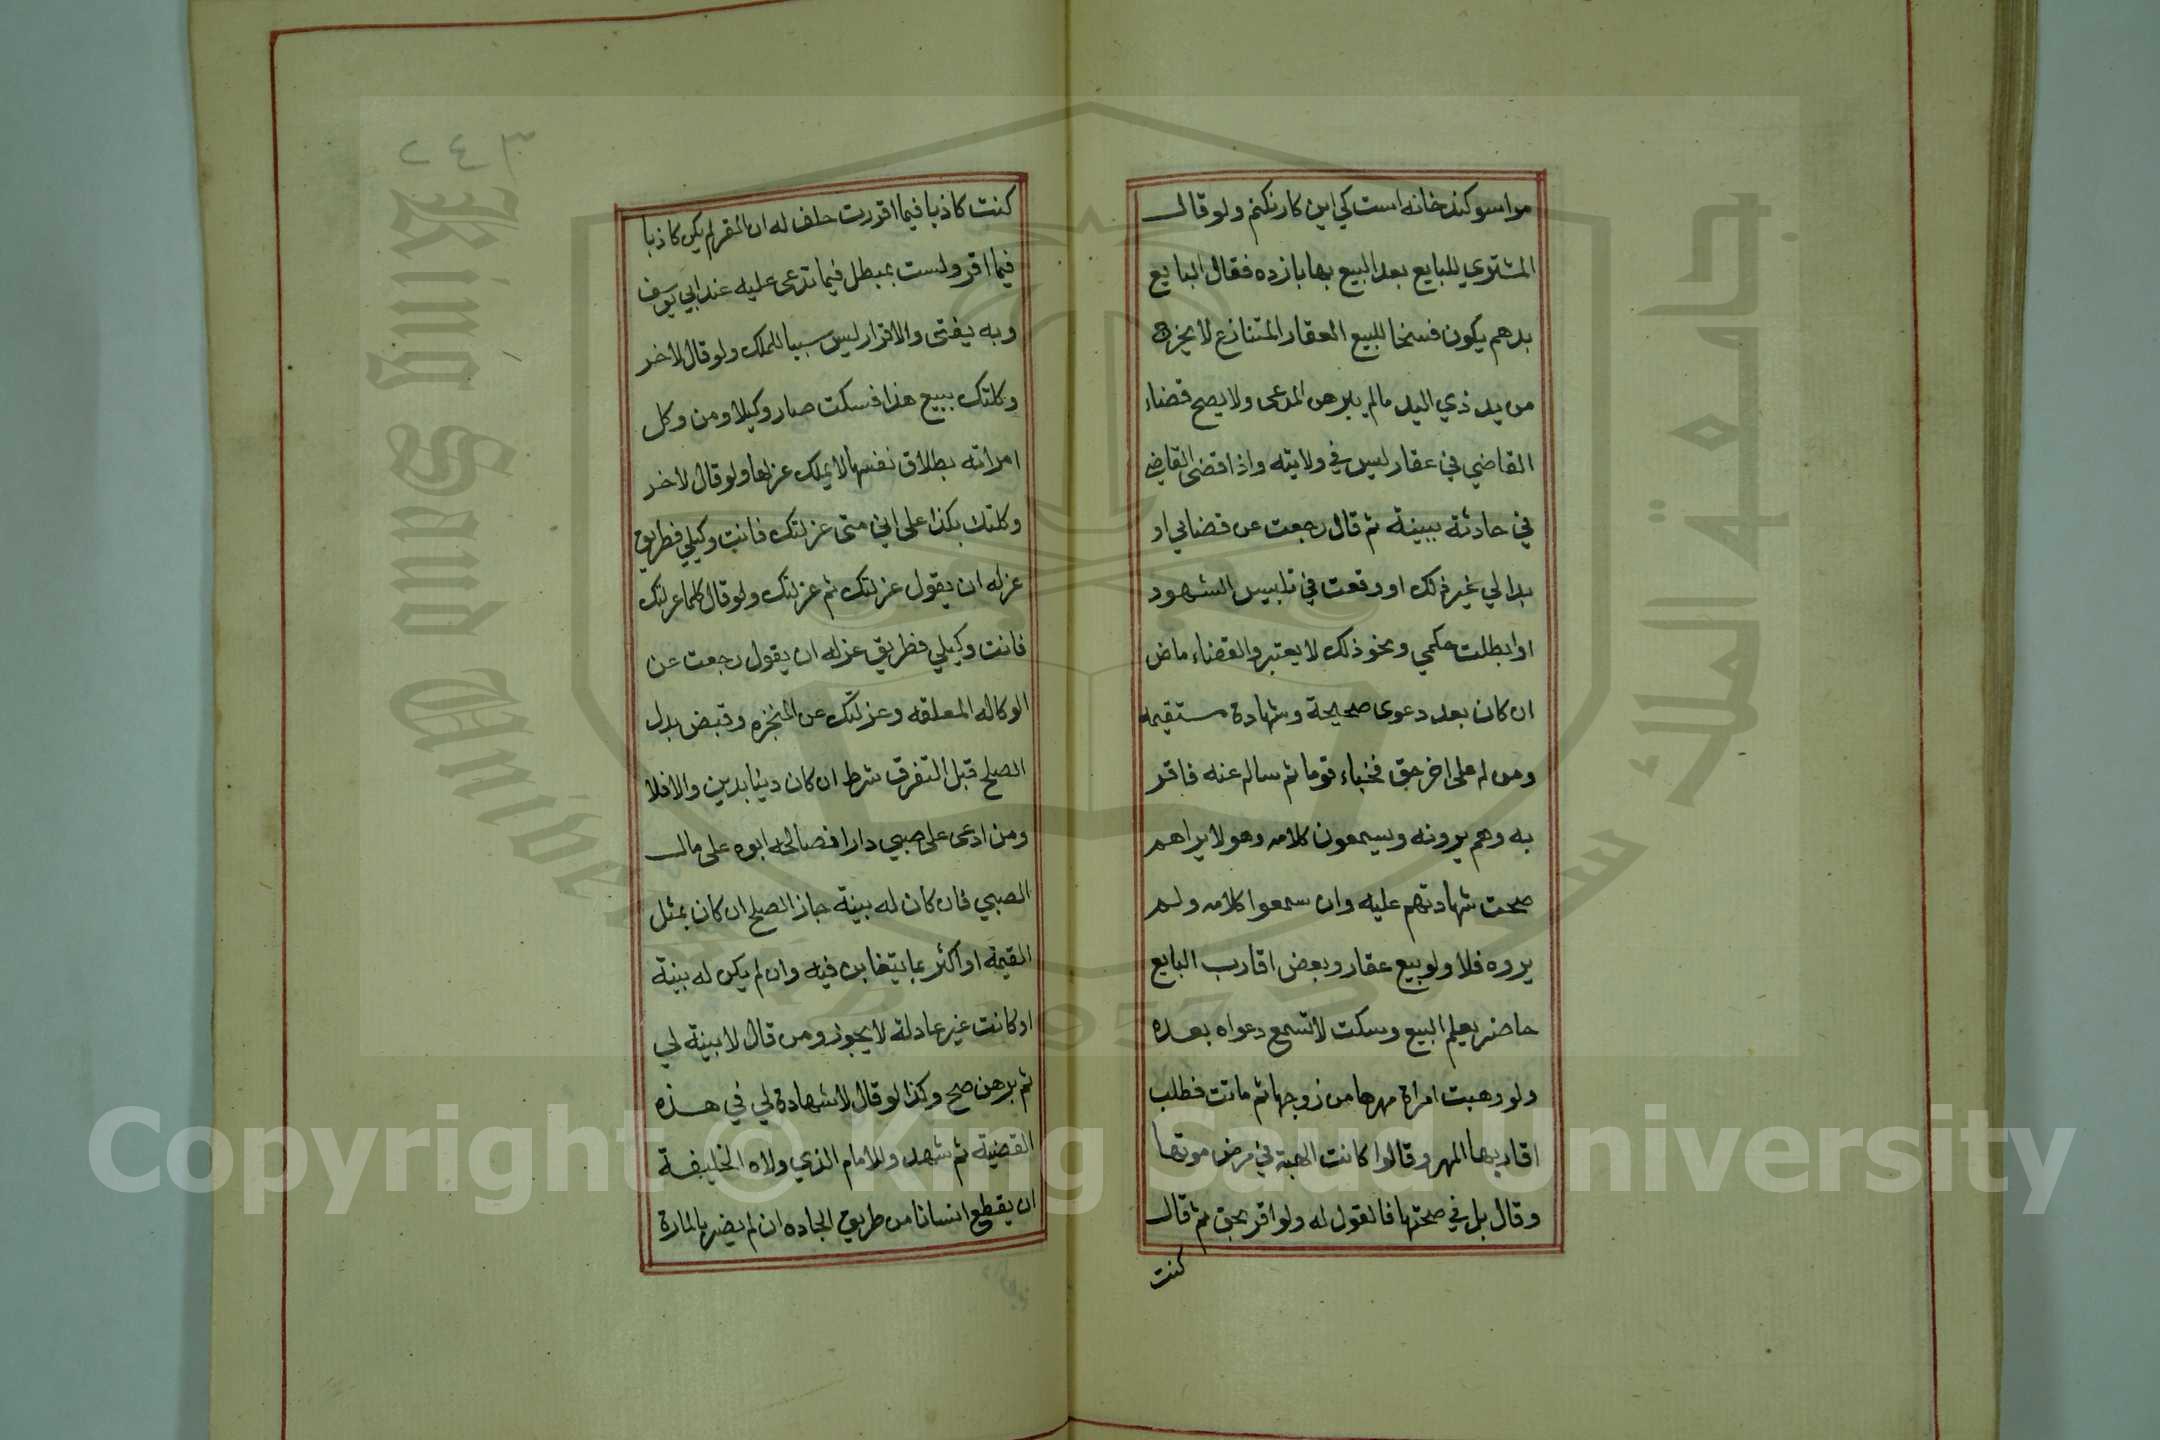 مراسوكند خانه است كي اين كار نكنم ولو قال
المشتري للبايع بعد البيع بها باز ده فقال البايع
بدهم يكون فسخا للبيع العقار المتنازع لا يخرج
من يد ذي اليد مالم يبرهن المدعى ولا يصح قضاء
القاضي في عقار ليس في ولايته واذا قضى القاضي
في حادثة ببينة ثم قال رجعت عن قضايي او
بدا لي غير ذلك او وقعت في تلبيس الشهود
او ابطلت حكمي ونحو ذلك لا يعتبر والقضاء ماض
ان كان بعد دعوى صحيحة وشهادة مستقيمه
ومن له على اخر حق فخباء قوما ثم ساله عنه فاقر
به وهم يرونه ويسمعون كلامه وهو لا يراهم
صحت شهادتهم عليه وان سمعوا كلامه ولم
يروه فلا ولو بيع عقار وبعض اقارب البايع
حاضر يعلم البيع وسكت لا تسمع دعواه بعده
ولو وهبت امراة مهرها من زوجها ثم ماتت فطلب
اقاربها المهر وقالوا كانت الهبة في مرض موتها
وقال بل في صحتها فالقول له ولو اقر بحق ثم قال
كنت
٢٤٣
كنت كاذبا فيما اقررت حلف له ان المقر لم يكن كاذبا
فيما اقر ولست بمبطل فيما تدعى عليه عند ابي يوسف
وبه يفتى والاقرار ليس سببا للملك ولو قال لاخر
وكلتك ببيع هذا فسكت صار وكيلا ومن وكل
امراته بطلاق نفسها لا يملك عزلها ولو قال لاخر
وكلتك بكذا على اني متى عزلتك فانت وكيلي فطريق
عزله ان يقول عزلتك ثم عزلتك ولو قال كلما عزلتك
فانت وكيلي فطريق عزله ان يقول رجعت عن
الوكاله المعلقه وعزلتك عن المنجزه وقبض بدل
الصلح قبل التفرق شرط ان كان دينا بدين والا فلا
ومن ادعى على صبي دارا فصالحه ابوه على مال
الصبي فان كان له بينة جاز الصلح ان كان بمثل
القيمة او اكثر بما يتغابن فيه وان لم يكن له بينة
او كانت غير عادلة لا يجوز ومن قال لا بينة لي
ثم برهن صح وكذا لو قال لا شهادة لي في هذه
القضية ثم شهد وللامام الذي ولاه الخليفة
ان يقطع انسانا من طريق الجاده ان لم يضر بالمارة
جامعة الملك سعود
King Saud University
1957
Copyright © King Saud University